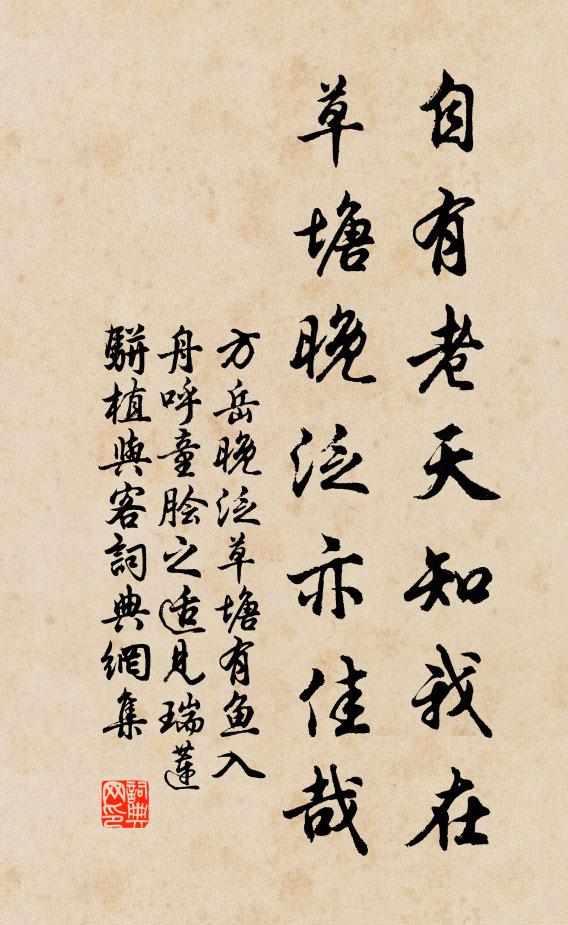 自有老天知我在
草塘晚泛亦佳哉
方岳晚泛草塘有鱼入
舟呼童脍之适见瑞莲
駢植與客詞典網集
詞典
网印